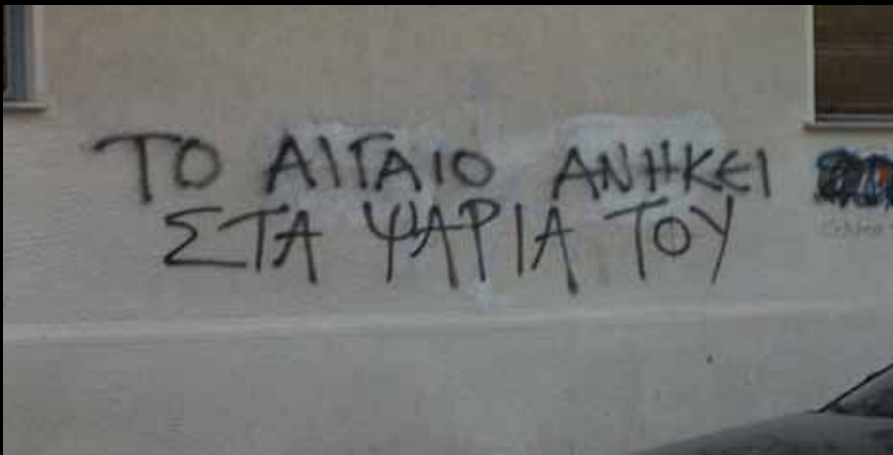 ΤΟ ΑΙΓΑΙΟ ΑΝΗΚΕΙ
ΣΤΑ ΨΑΡΙΑ ΤΟΥ